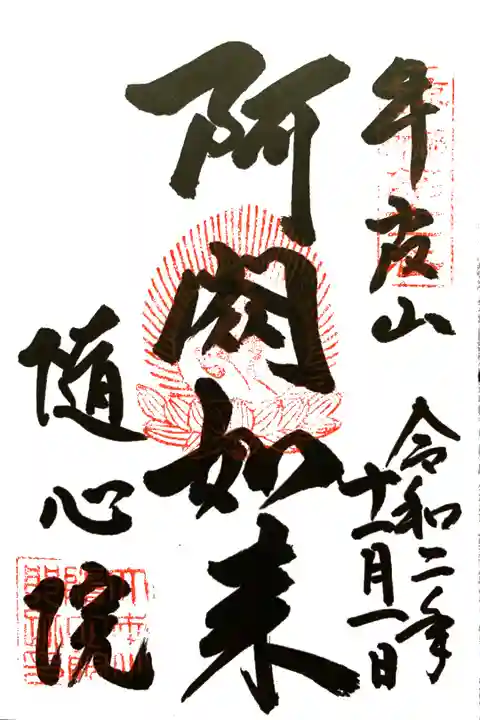 牛皮山
令和二年
十一月一日
阿閦如来
随心院